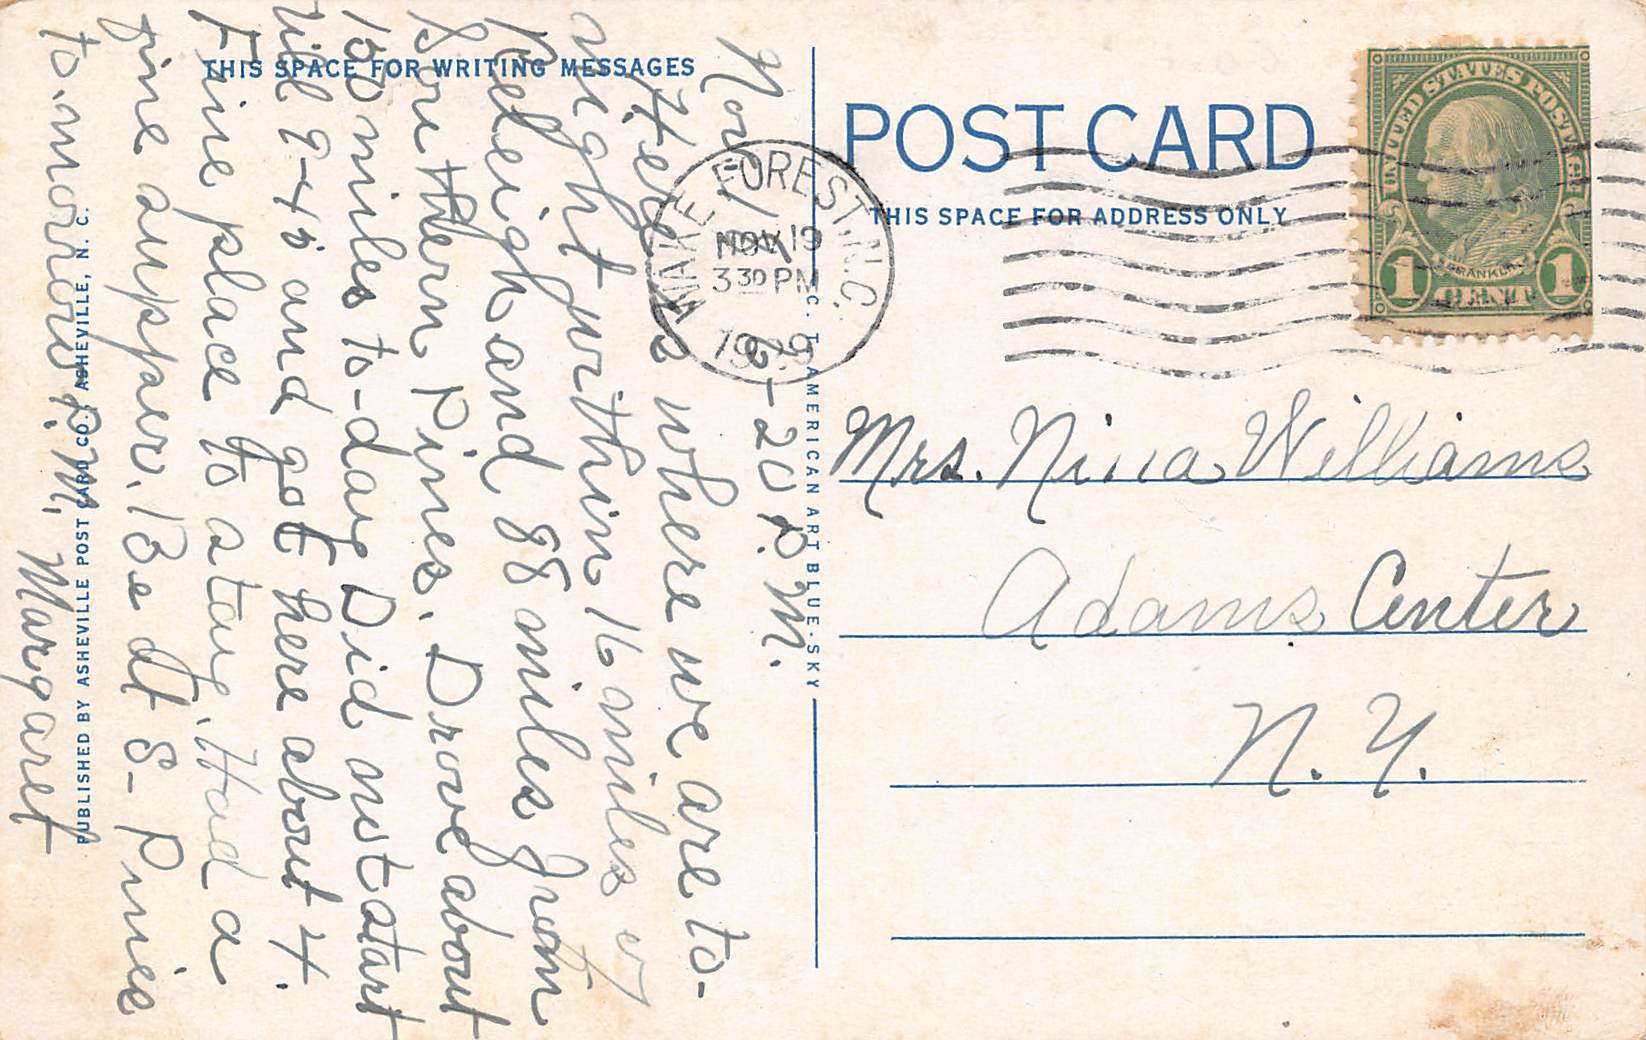 THIS SPACE FOR WRITING MESSAGES
Nov 6-20 P.M.
Here's where we are to-
night within 16 miles of
Raleigh and 88 miles from
Southern Pines. Drove about
150 miles to-day Did not start
till 9-45 and got here about 4.
Fine place to stay. Had a
fine supper. Be at S- Pines
to-morrow P.M. Margaret
PUBLISHED BY ASHEVILLE POST CARD CO., ASHEVILLE, N. C.
C. T. AMERICAN ART BLUE-SKY
POST CARD
THIS SPACE FOR ADDRESS ONLY
WAKE FOREST, N.C.
NOV 19
3 30 PM
1929
UNITED STATES POSTAGE
FRANKLIN
1 CENT 1
Mrs. Nina Williams
Adams Center
N. Y.